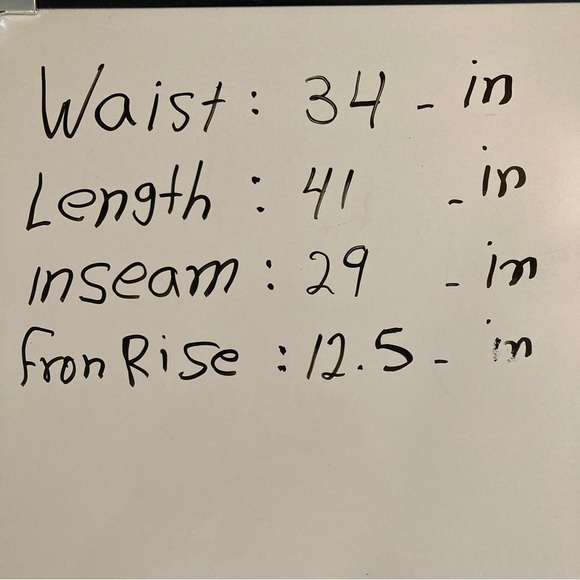 Waist: 34 - in
Length: 41 - in
inseam: 29 - in
fron Rise: 12.5 - in